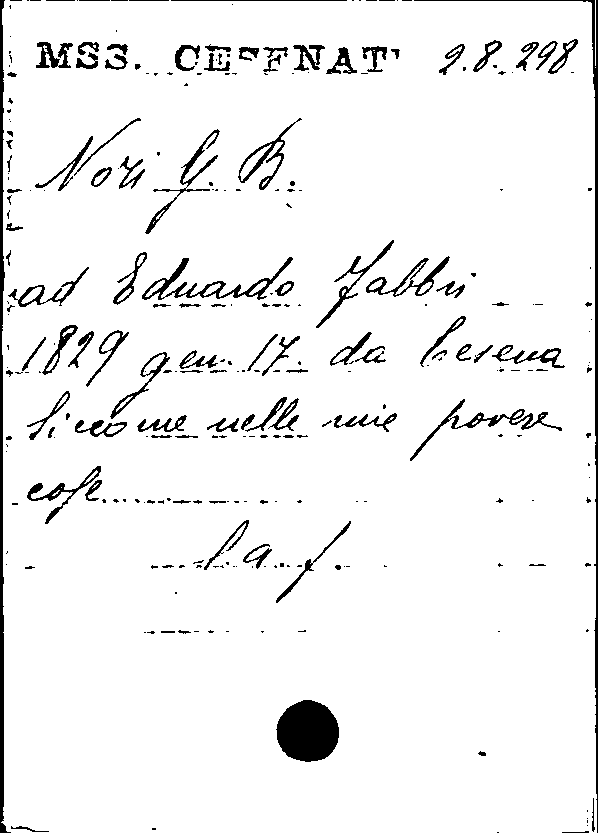 MSS. CESENATI 2.8.298
Nori G. B.
ad Eduardo Fabbri
1829 gen. 17. da Cesena
Siccome nelle mie povere
cose.....
l. a. f.